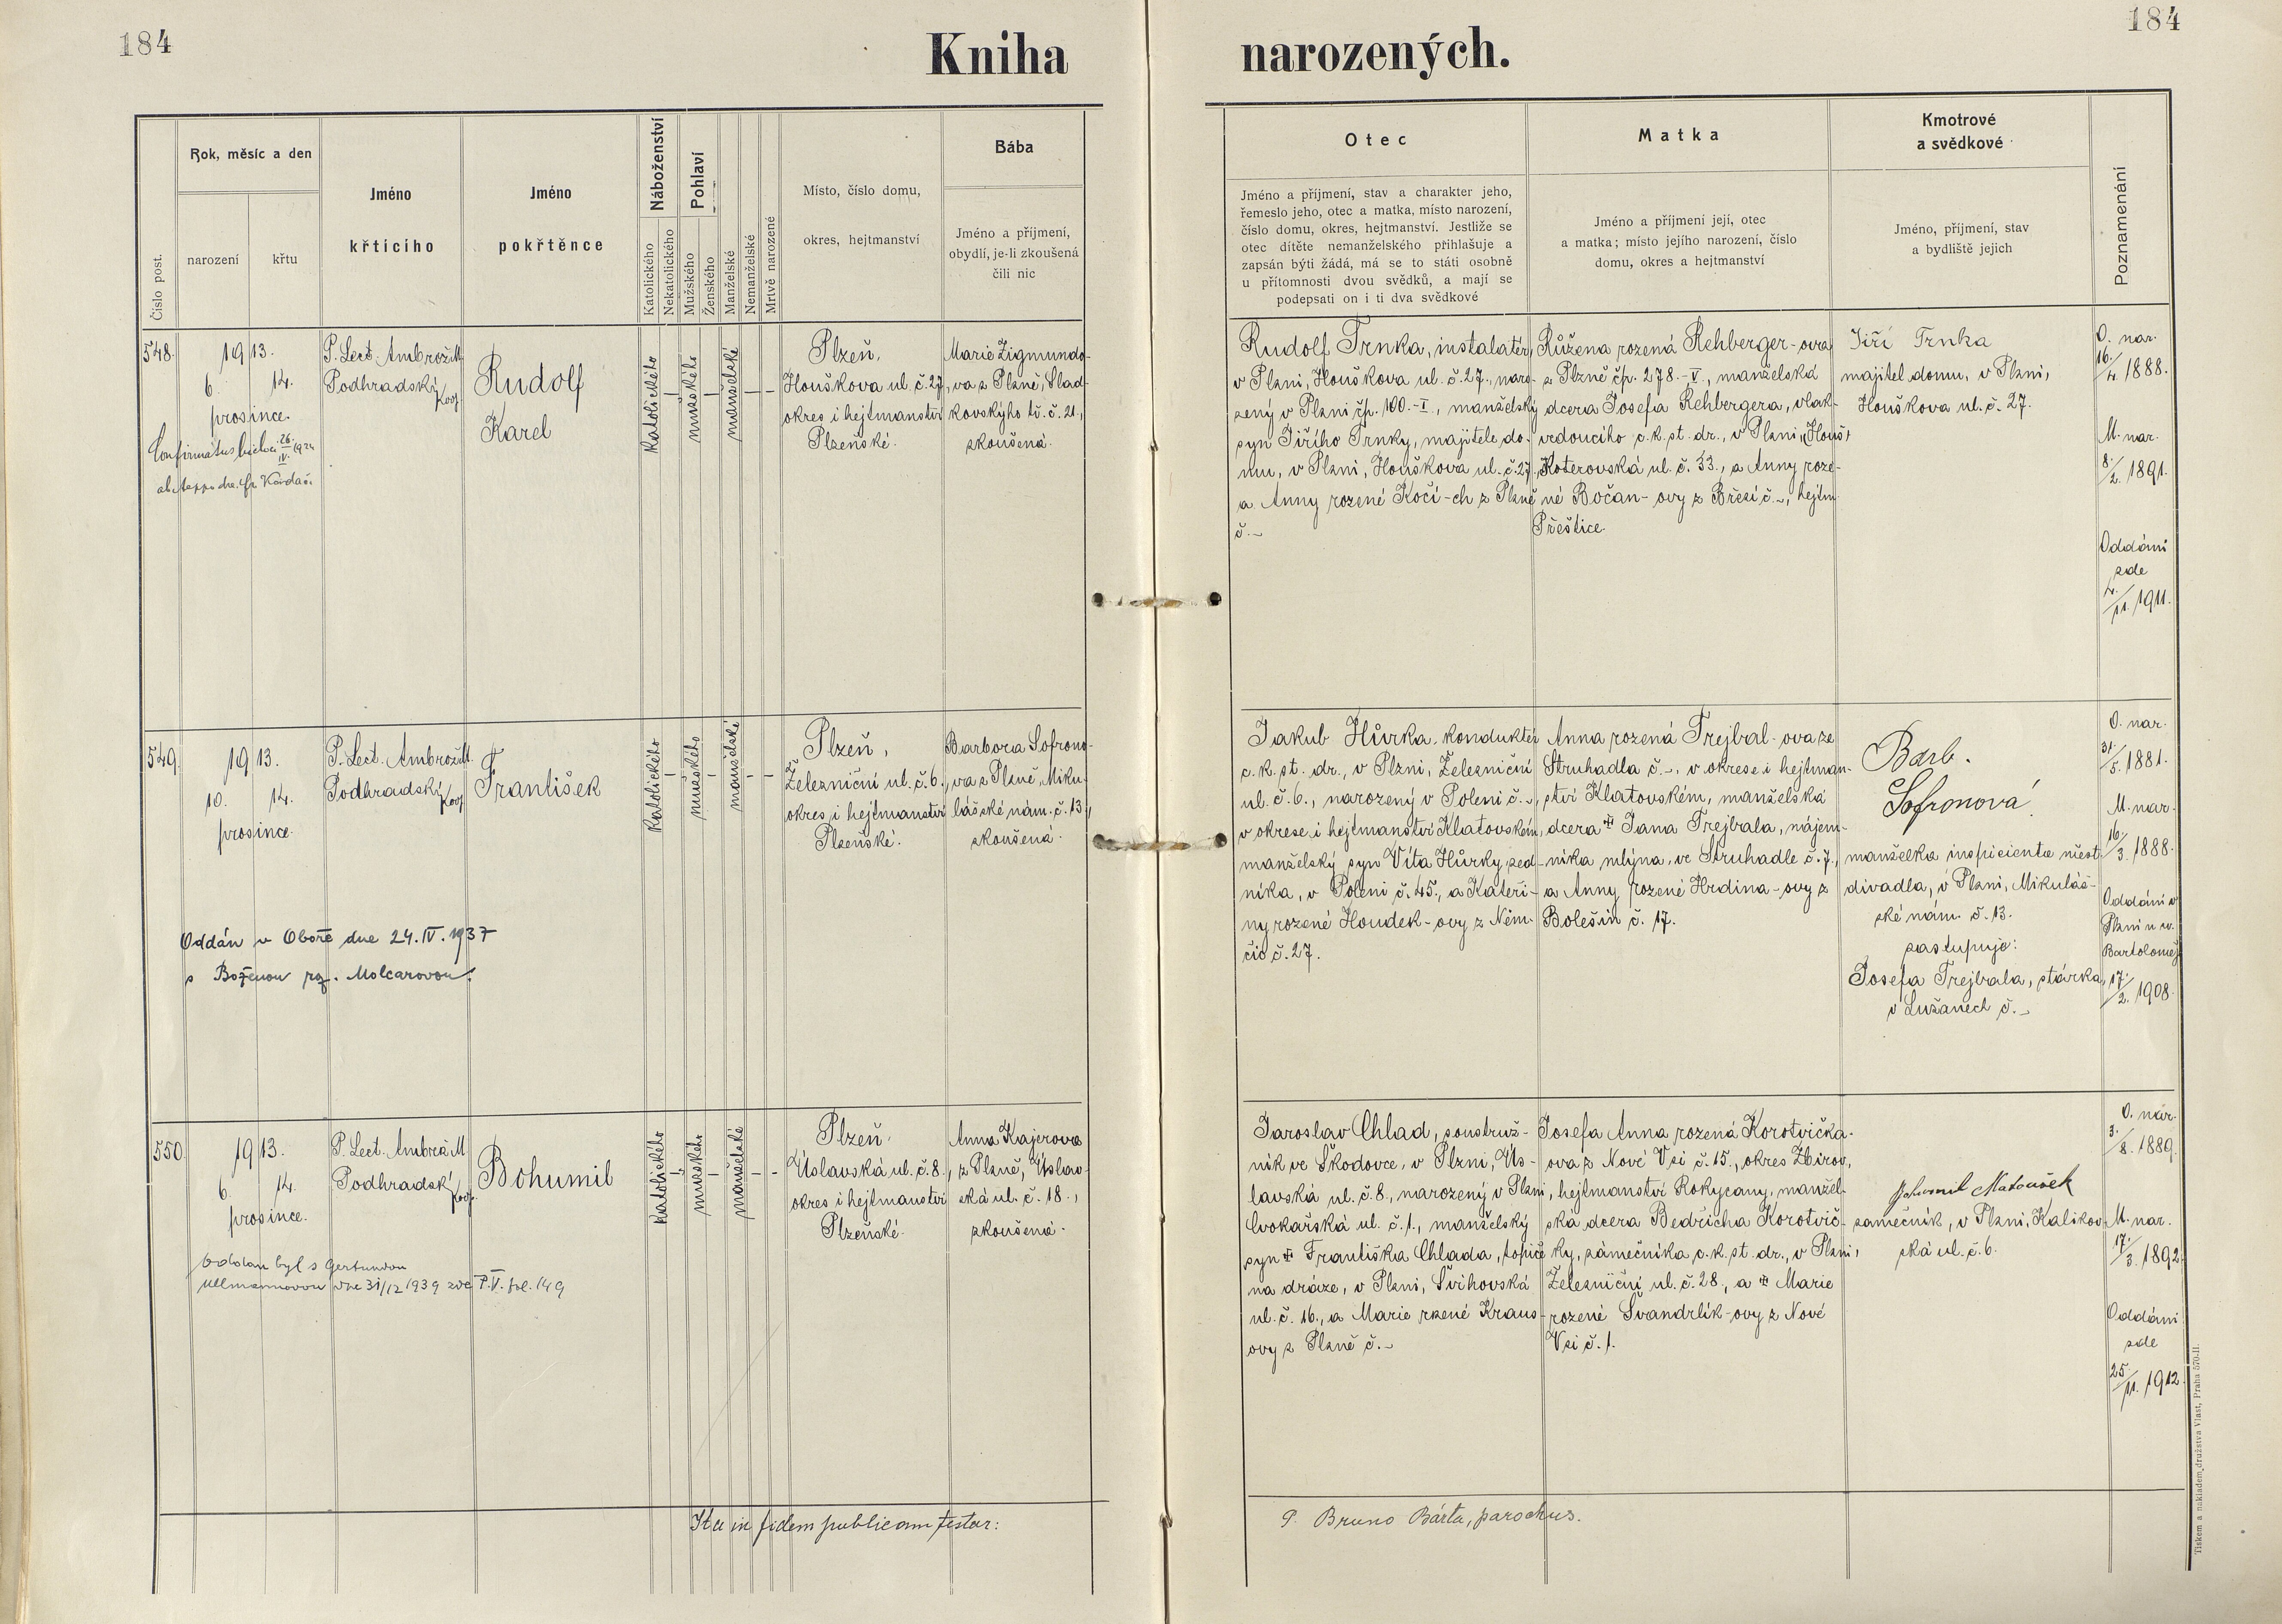 184
184
Kniha
narozených.
Číslo post.
Rok, měsíc a den
narození
křtu
Jméno
křtícího
Jméno
pokřtěnce
Náboženství
Katolického
Nekatolického
Pohlaví
Mužského
Ženského
Manželské
Nemanželské
Mrtvě narozené
Místo, číslo domu,
okres, hejtmanství
Bába
Jméno a příjmení,
obydlí, je-li zkoušená
čili nic
Otec
Jméno a příjmení, stav a charakter jeho,
řemeslo jeho, otec a matka, místo narození,
číslo domu, okres, hejtmanství. Jestliže se
otec dítěte nemanželského přihlašuje a
zapsán býti žádá, má se to státi osobně
u přítomnosti dvou svědků, a mají se
podepsati on i ti dva svědkové
Matka
Jméno a příjmení její, otec
a matka; místo jejího narození, číslo
domu, okres a hejtmanství
Kmotrové
a svědkové
Jméno, příjmení, stav
a bydliště jejich
Poznamenání
548.
1913.
6. 14.
prosince.
P. Lect. Ambrož M.
Podhradský
koop.
Rudolf
Karel
katolického
mužského
manželské
Plzeň,
Houškova ul. č. 27,
okres i hejtmanství
Plzeňské.
Marie Zigmundo-
va z Plzně, Slad-
kovského tř. č. 21,
zkoušená.
Rudolf Trnka, instalatér,
v Plzni, Houškova ul. č. 27., naro-
zený v Plzni čp. 100.-I., manželský
syn Jiřího Trnky, majitele do-
mu, v Plzni, Houškova ul. č. 27,
a Anny rozené Kočí-ch z Plzně
č. -
Růžena rozená Rehberger-ova
z Plzně čp. 278.-V., manželská
dcera Josefa Rehbergera, vlak-
vedoucího c. k. st. dr., v Plzni,
Koterovská ul. č. 33., a Anny roze-
né Bočan-ovy z Březí č. -, hejtm.
Přeštice.
Jiří Trnka
majitel domu, v Plzni,
Houškova ul. č. 27.
O. nar.
16./4. 1888.
M. nar.
8./2. 1891.
Oddáni
zde
4./11. 1911.
549.
1913.
10. 14.
prosince.
P. Lect. Ambrož M.
Podhradský
koop.
František
katolického
mužského
manželské
Plzeň,
Železniční ul. č. 6.,
okres i hejtmanství
Plzeňské.
Barbora Sofrono-
va z Plzně, Miku-
lášské nám. č. 13,
zkoušená.
Oddán v Oboře dne 24. IV. 1937
s Boženou roz. Molcarovou.
Jakub Hůrka, konduktér
c. k. st. dr., v Plzni, Železniční
ul. č. 6., narozený v Poleni č. -,
v okrese i hejtmanství Klatovském,
manželský syn Víta Hůrky, zed-
níka, v Poleni č. 45., a Kateři-
ny rozené Houdek-ovy z Něm-
čic č. 27.
Anna rozená Trejbal-ova ze
Struhadla č. -, v okrese i hejtman-
ství Klatovském, manželská
dcera † Jana Trejbala, nájem-
níka mlýna, ve Struhadle č. 7.,
a Anny rozené Hrdina-ovy z
Bolešin č. 17.
Barb.
Sofronová
manželka inspicienta měst.
divadla, v Plzni, Mikuláš-
ské nám. č. 13.
zastupuje:
Josefa Trejbala, stárka,
v Lužanech č. -
O. nar.
31./5. 1881.
M. nar.
16./3. 1888.
Oddáni v
Plzni u sv.
Bartoloměj
17./2. 1908.
550.
1913.
6. 14.
prosince.
P. Lect. Ambrož M
Podhradský
koop.
Bohumil
katolického
mužského
manželské
Plzeň.
Úslavská ul. č. 8.,
okres i hejtmanství
Plzeňské.
Anna Kajerova
z Plzně, Úslav-
ská ul. č. 18.,
zkoušená.
Oddán byl s Gertrudou
Ullmannovou dne 31/12 1939 zde T. V. fol. 149
Jaroslav Chlad, soustruž-
ník ve Škodovce, v Plzni, Ús-
lavská ul. č. 8., narozený v Plzni,
Cvokařská ul. č. 1., manželský
syn † Františka Chlada, topiče
na dráze, v Plzni, Švihovská
ul. č. 16., a Marie rzené Kraus-
ovy z Plzně č. -
Josefa Anna rozená Korotvička-
ova z Nové Vsi č. 15., okres Zbirov,
hejtmanství Rokycany, manžel-
ská dcera Bedřicha Korotvič-
ky, zámečníka c. k. st. dr., v Plzni,
Železniční ul. č. 28., a † Marie
rozené Švandrlík-ovy z Nové
Vsi č. 1.
Bohumil Matoušek
zámečník, v Plzni, Kalikov-
ská ul. č. 6.
O. nar.
3./8. 1889.
M. nar.
17./3. 1892.
Oddáni
zde
25./11. 1912.
Ita in fidem publicam testor:
P. Bruno Bárta, parochus.
Tiskem a nákladem družstva Vlast, Praha 570-II.